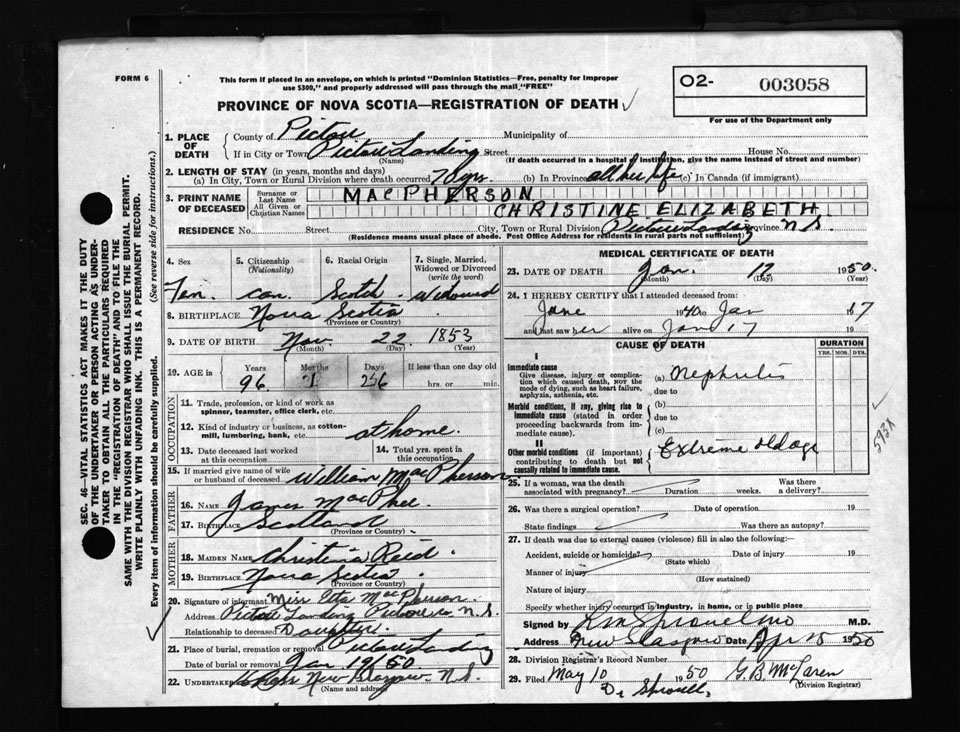 FORM 6
This form if placed in an envelope, on which is printed "Dominion Statistics—Free, penalty for improper
use $300," and properly addressed will pass through the mail "FREE"
O2- 003058
For use of the Department only
PROVINCE OF NOVA SCOTIA—REGISTRATION OF DEATH
SEC. 46—VITAL STATISTICS ACT MAKES IT THE DUTY
OF THE UNDERTAKER OR PERSON ACTING AS UNDER-
TAKER TO OBTAIN ALL THE PARTICULARS REQUIRED
IN THE "REGISTRATION OF DEATH" AND TO FILE THE
SAME WITH THE DIVISION REGISTRAR WHO SHALL ISSUE THE BURIAL PERMIT.
WRITE PLAINLY WITH UNFADING INK. THIS IS A PERMANENT RECORD.
Every item of information should be carefully supplied. (See reverse side for instructions.)
1. PLACE OF DEATH
County of Pictou Municipality of
If in City or Town Pictou Landing Street House No.
(Name) (If death occurred in a hospital or institution, give the name instead of street and number)
2. LENGTH OF STAY (in years, months and days)
(a) In City, Town or Rural Division where death occurred 78 yrs (b) In Province all her life (c) In Canada (if immigrant)
3. PRINT NAME OF DECEASED
Surname or Last Name MACPHERSON
All Given or Christian Names CHRISTINE ELIZABETH
RESIDENCE No. Street City, Town or Rural Division Pictou Landing Province N.S.
(Residence means usual place of abode. Post Office Address for residents in rural parts not sufficient)
4. Sex 5. Citizenship (Nationality) 6. Racial Origin 7. Single, Married, Widowed or Divorced (write the word)
Fem. Can. Scotch. Widowed
8. BIRTHPLACE Nova Scotia
(Province or Country)
9. DATE OF BIRTH Nov. 22 1853
(Month) (Day) (Year)
10. AGE in Years Months Days If less than one day old
96 1 26 hrs. or min.
OCCUPATION
11. Trade, profession, or kind of work as
spinner, teamster, office clerk, etc.
12. Kind of industry or business, as cotton-
mill, lumbering, bank, etc. at home.
13. Date deceased last worked at this occupation 14. Total yrs. spent in this occupation
15. If married give name of wife
or husband of deceased William MacPherson
FATHER
16. Name James MacPhee
17. Birthplace Scotland
(Province or Country)
MOTHER
18. Maiden Name Christina Reid
19. Birthplace Nova Scotia
(Province or Country)
20. Signature of informant Miss Etta MacPherson
Address Pictou Landing Pictou Co N.S.
Relationship to deceased Daughter.
21. Place of burial, cremation or removal Pictou Landing
Date of burial or removal Jan 19/50
22. Undertaker New Glasgow N.S.
(Name and address)
MEDICAL CERTIFICATE OF DEATH
23. DATE OF DEATH Jan. 17 1950.
(Month) (Day) (Year)
24. I HEREBY CERTIFY that I attended deceased from:
June 1940 to Jan 17
and last saw her alive on Jan 17 19
CAUSE OF DEATH DURATION
YRS. MOS. DYS.
I
Immediate cause
Give disease, injury or complica-
tion which caused death, NOT the
mode of dying, such as heart failure,
asphyxia, asthenia, etc.
(a) Nephritis
due to
Morbid conditions, if any, giving rise to
immediate cause (stated in order
proceeding backwards from im-
mediate cause).
(b)
due to
(c)
II
Other morbid conditions (if important)
contributing to death but not
causally related to immediate cause.
Extreme old age
593X
25. If a woman, was the death
associated with pregnancy? Duration weeks. Was there a delivery?
26. Was there a surgical operation? Date of operation 19
State findings Was there an autopsy?
27. If death was due to external causes (violence) fill in also the following:
Accident, suicide or homicide? Date of injury 19
(State which)
Manner of injury
(How sustained)
Nature of injury
Specify whether injury occurred in industry, in home, or in public place
Signed by M.D.
Address New Glasgow Date Apr 25 1950
28. Division Registrar's Record Number
29. Filed May 10 1950 G. B. McLaren
(Division Registrar)